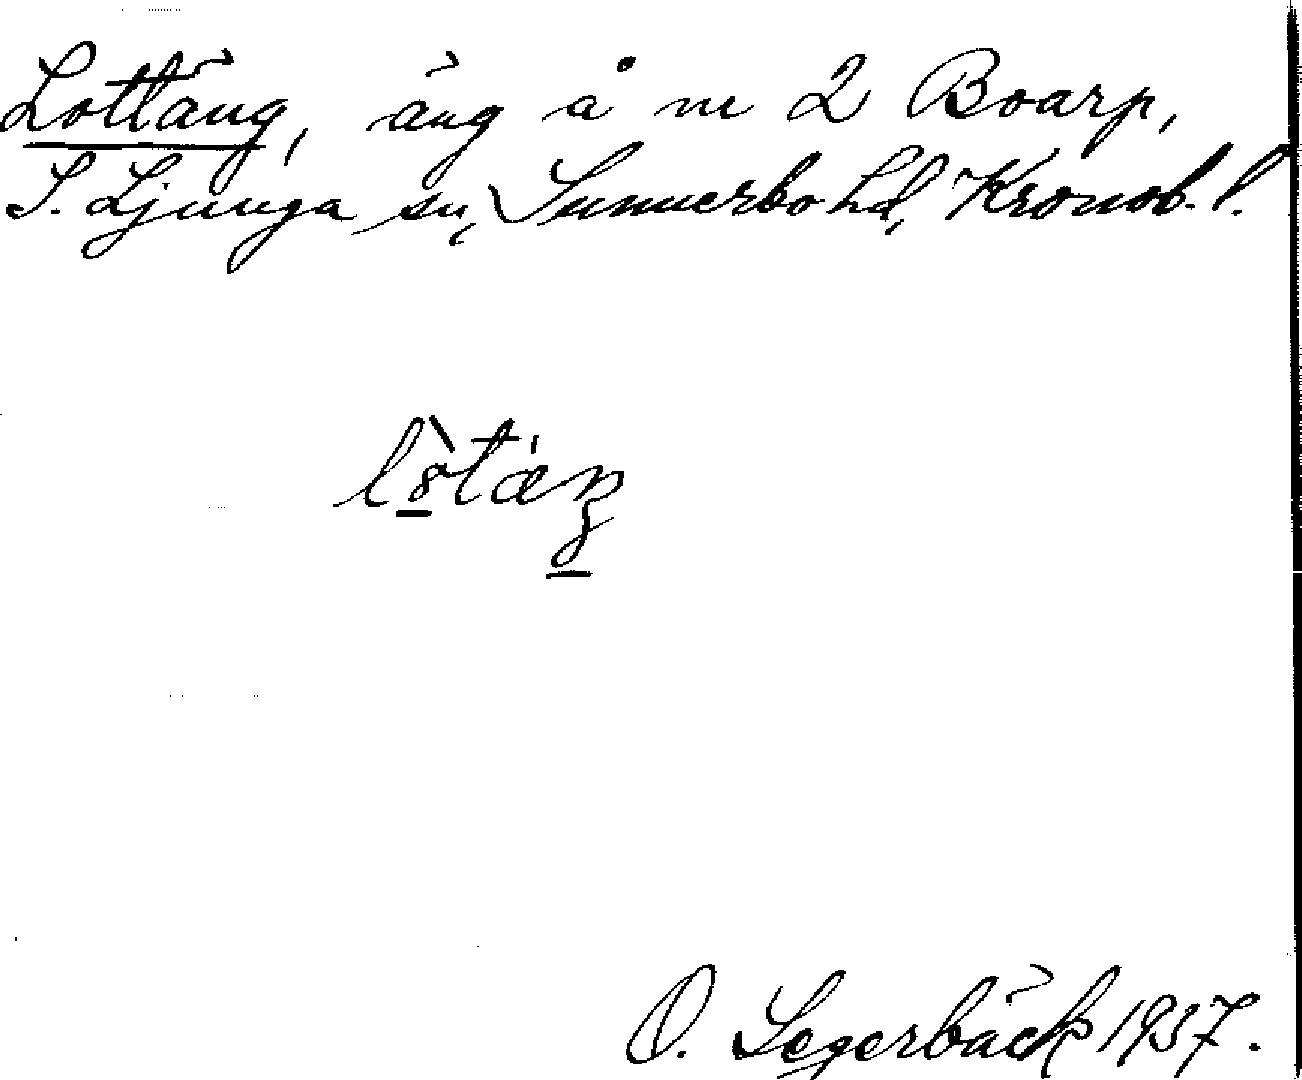 Lottäng, äng å nr 2 Boarp,
S. Ljunga sn, Sunnerbo hd, Kronob. l.
lòtæŋ
O. Segerbäck 1937.